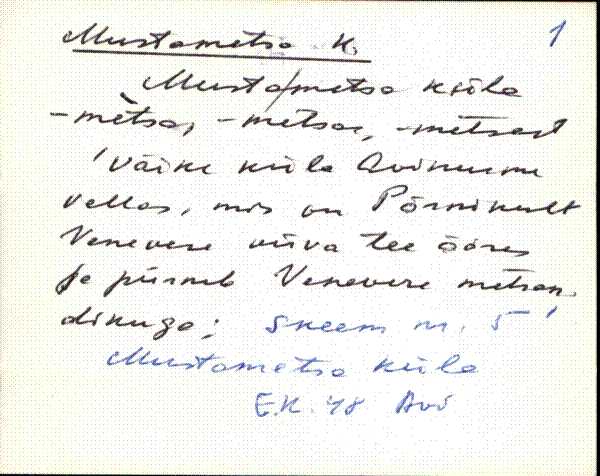 Mustametsa k. 1
Musta/metsa küla
-mètsa, -metsas, -metsast
'väike küla Avinurme
vallas, mis on Põrnikult
Venevere viiva tee ääres
ja piirneb Venevere metsan-
dikuga; skeem nr. 5'
Mustametsa küla
E.K. '48 Avi